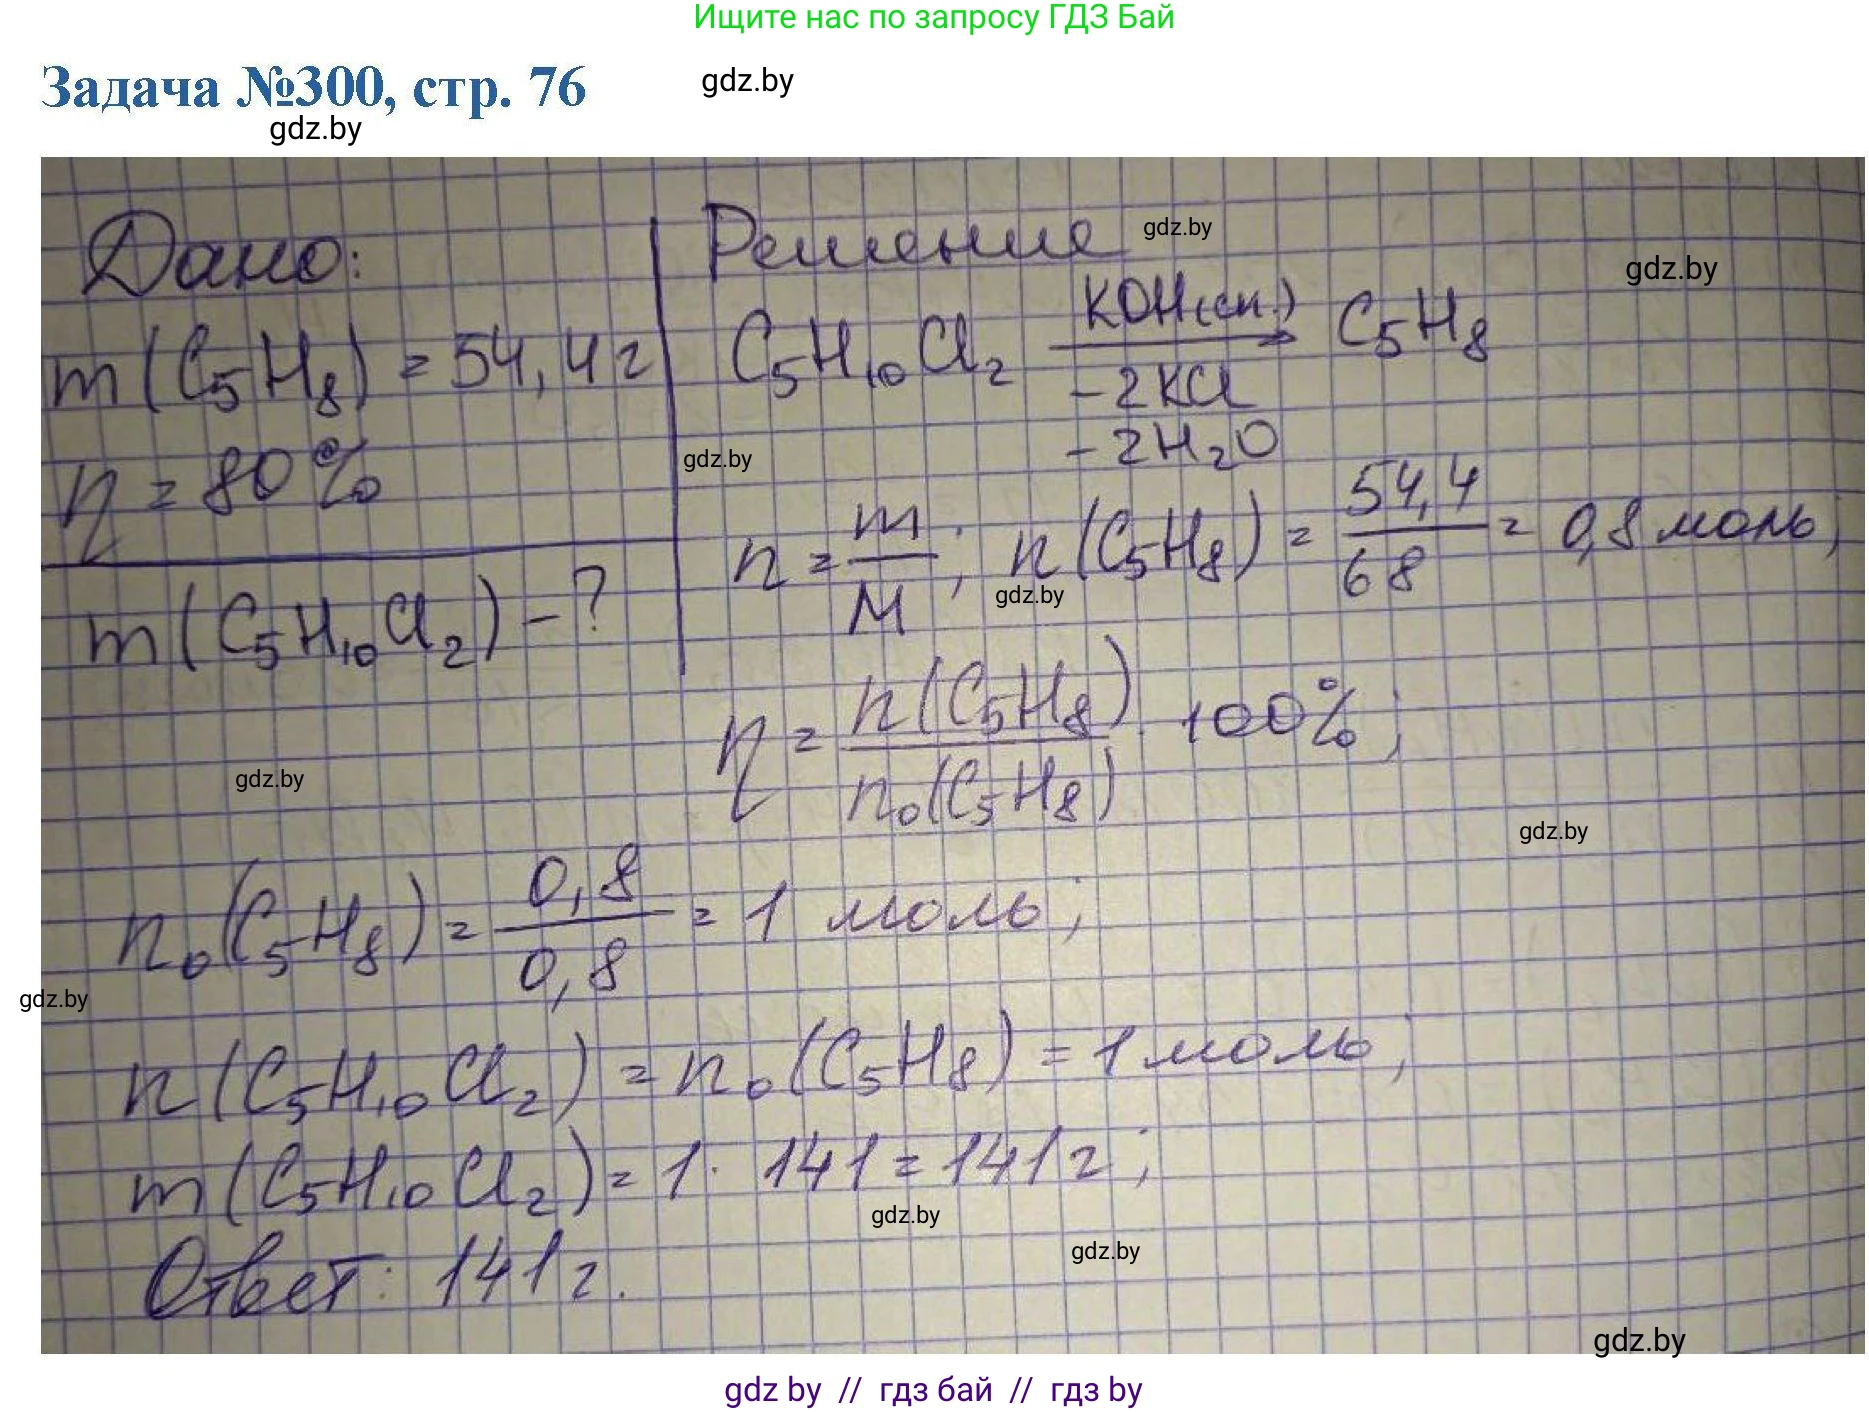 Ищите нас по запросу ГДЗ Бай
Задача №300, стр. 76
gdz.by
gdz.by
Дано:
m(C₅H₈) = 54,4 г
η = 80%
m(C₅H₁₀Cl₂) - ?
Решение
gdz.by
gdz.by
C₅H₁₀Cl₂ KOH(сп.) → C₅H₈
-2KCl
-2H₂O
gdz.by
n = m/M; n(C₅H₈) = 54,4/68 = 0,8 моль;
gdz.by
η = n(C₅H₈)/n₀(C₅H₈) · 100%;
gdz.by
gdz.by
n₀(C₅H₈) = 0,8/0,8 = 1 моль;
gdz.by
n(C₅H₁₀Cl₂) = n₀(C₅H₈) = 1 моль;
m(C₅H₁₀Cl₂) = 1 · 141 = 141 г;
gdz.by
gdz.by
Ответ: 141 г.
gdz.by
gdz by // гдз бай // гдз by